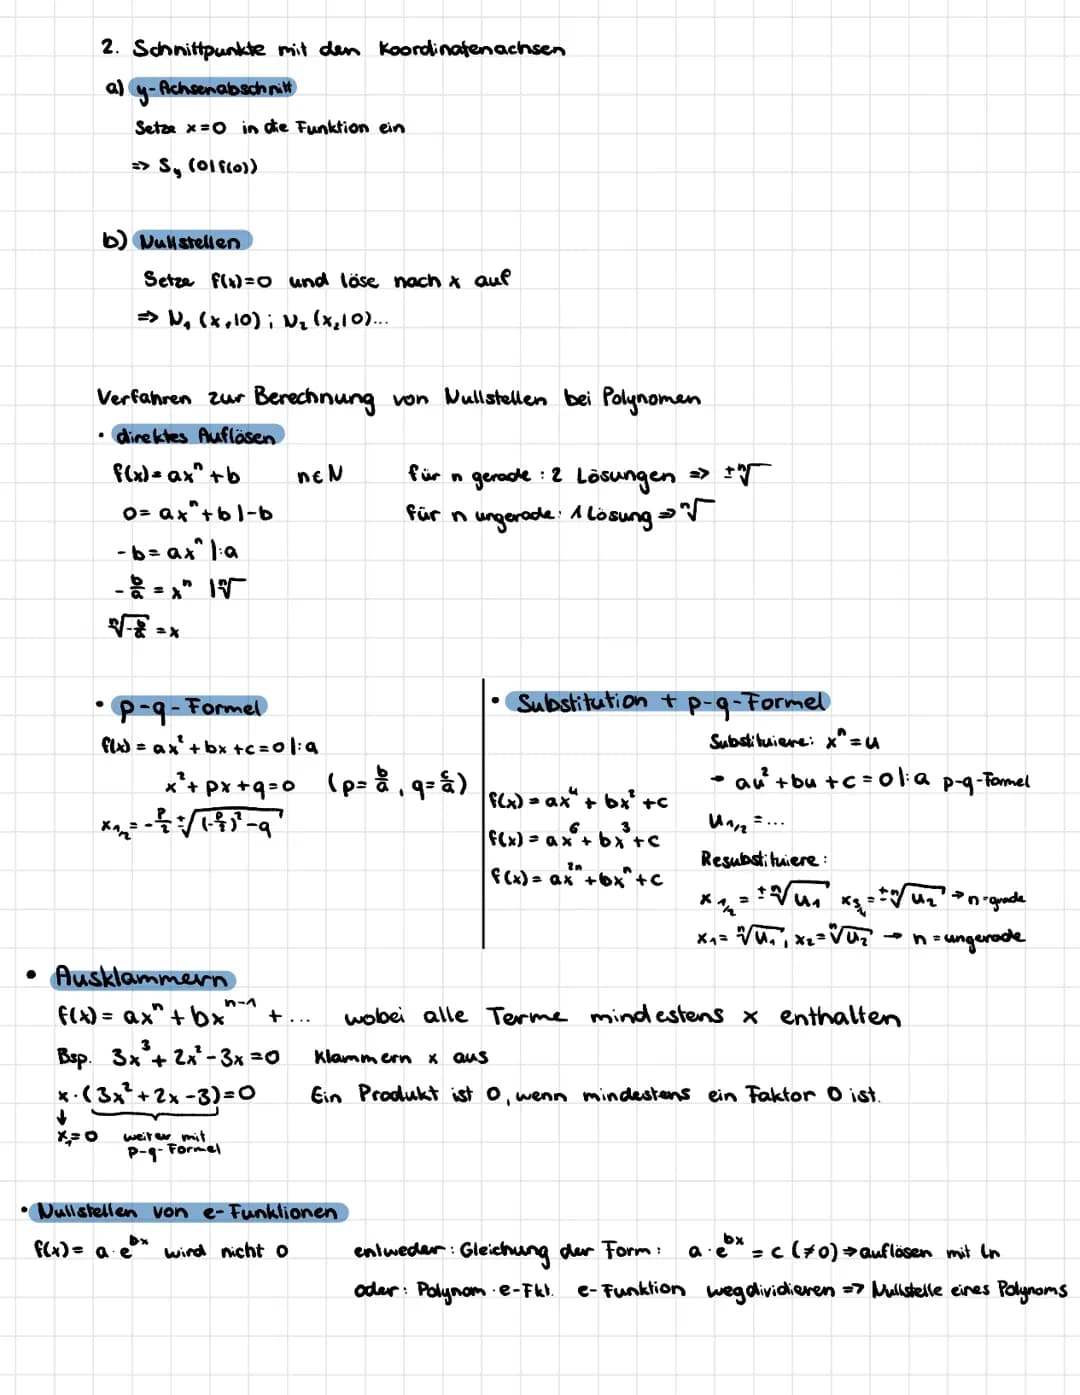 2. Schnittpunkte mit den Koordinatenachsen
a) y-Achsenabschnitt
Setze x=0 in die Funktion ein
=> Sy (0|f(0))
b) Nullstellen
Setze f(x)=0 und löse nach x auf
=> N₁ (x₁|0) ; N₂ (x₂|0)...
Verfahren zur Berechnung von Nullstellen bei Polynomen
• direktes Auflösen
f(x)= axⁿ +b n∈N für n gerade : 2 Lösungen => ±ⁿ√
0= axⁿ+b |-b für n ungerade: 1 Lösung => ⁿ√
-b= axⁿ |:a
-b/a = xⁿ |ⁿ√
ⁿ√-b/a = x
• p-q-Formel
f(x) = ax² + bx +c =0 |:a
x² + px +q=0 (p= b/a , q= c/a)
x₁/₂ = -p/2 ± √(-p/2)² -q
• Substitution + p-q-Formel
Substituiere: xⁿ = u
- au² +bu +c =0 |:a p-q-Formel
f(x) = ax⁴ + bx² +c
u₁/₂ = ...
f(x) = ax⁶ + bx³ +c
Resubstituiere :
f(x) = ax²ⁿ +bxⁿ +c
x₁/₂ = ±ⁿ√u₁ x₃/₄ = ±ⁿ√u₂ → n=grade
x₁= ⁿ√u₁ , x₂= ⁿ√u₂ → n = ungerade
• Ausklammern
f(x) = axⁿ + bxⁿ⁻¹ + ... wobei alle Terme mindestens x enthalten
Bsp. 3x³ + 2x² - 3x =0 Klammern x aus
x · (3x² + 2x -3) =0 Ein Produkt ist 0, wenn mindestens ein Faktor 0 ist.
↓
x₁=0 weiter mit
p-q- Formel
• Nullstellen von e-Funktionen
f(x)= a·eᵇˣ wird nicht 0 entweder : Gleichung der Form : a·eᵇˣ = c (≠0) => auflösen mit ln
oder : Polynom · e-Fkt. e-Funktion wegdividieren => Nullstelle eines Polynoms